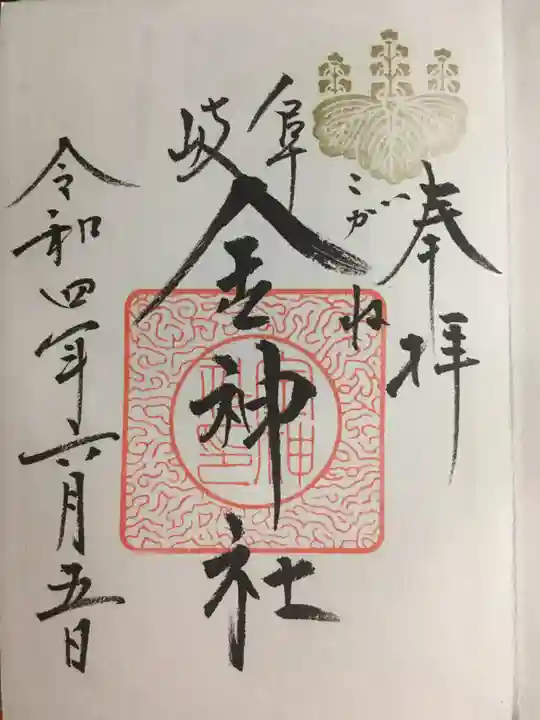 奉拝
こがね
岐阜
金神社
令和四年六月五日